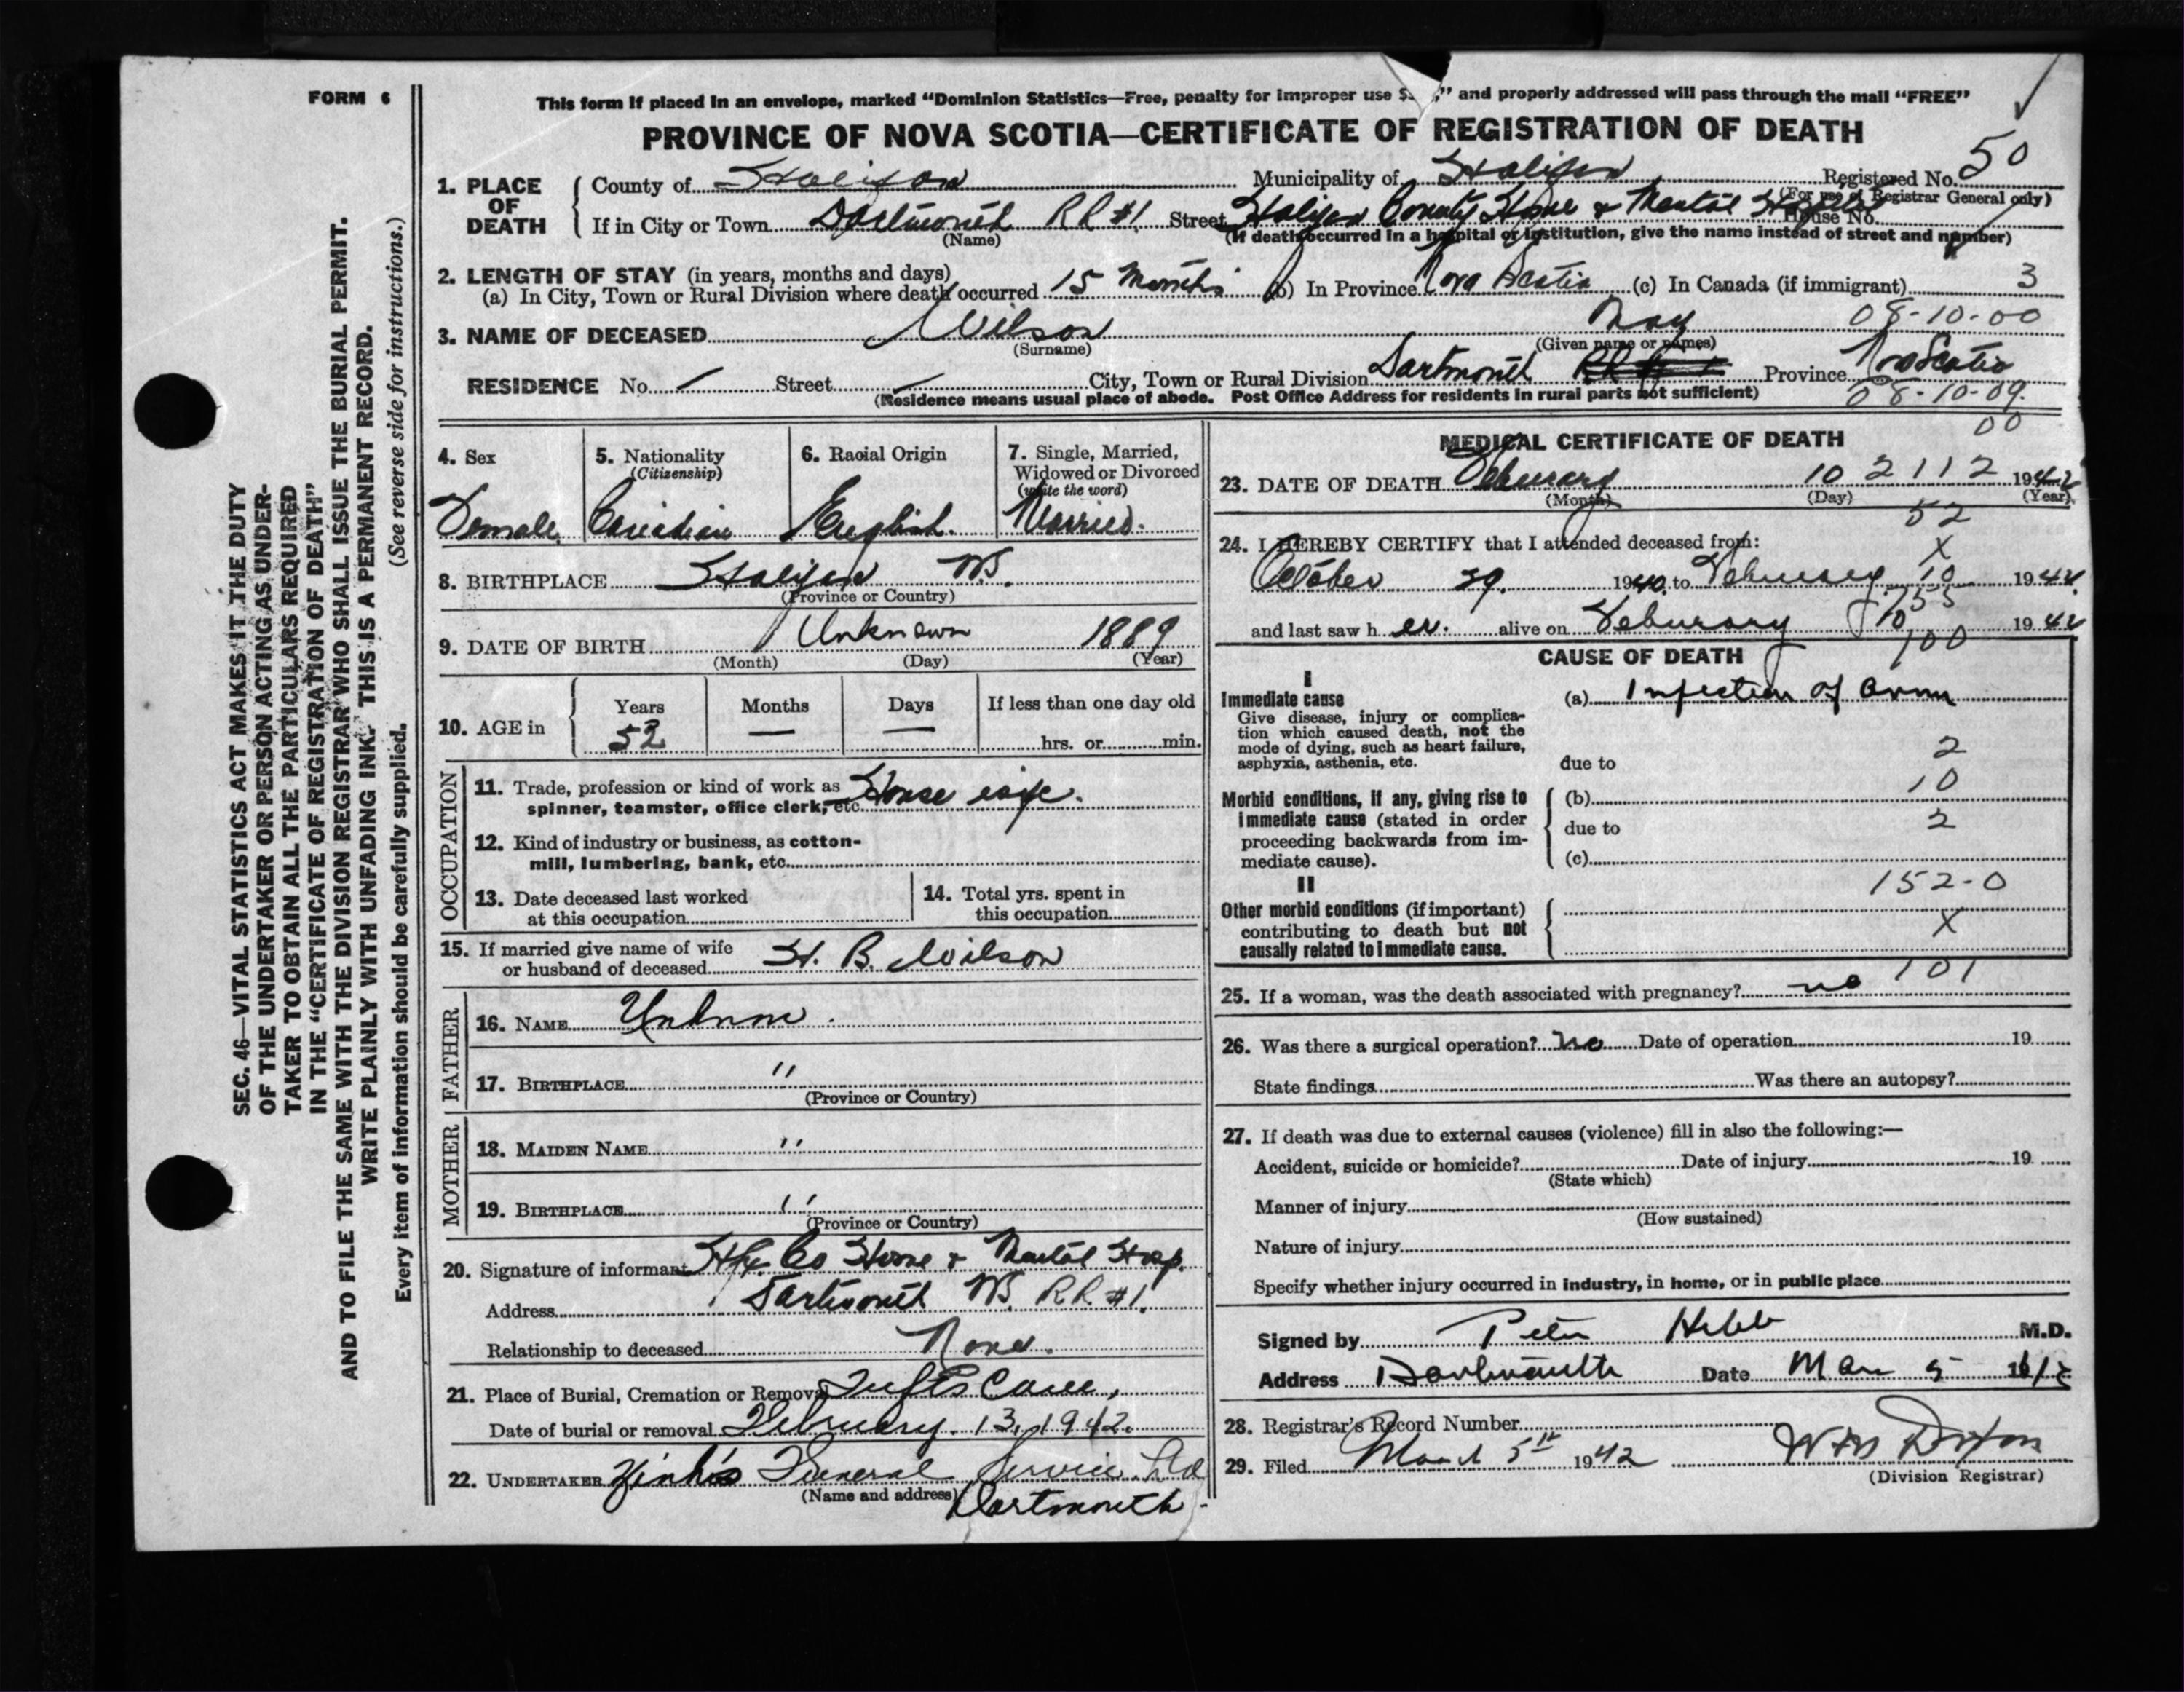 FORM 6
SEC. 46—VITAL STATISTICS ACT MAKES IT THE DUTY
OF THE UNDERTAKER OR PERSON ACTING AS UNDER-
TAKER TO OBTAIN ALL THE PARTICULARS REQUIRED
IN THE "CERTIFICATE OF REGISTRATION OF DEATH"
AND TO FILE THE SAME WITH THE DIVISION REGISTRAR WHO SHALL ISSUE THE BURIAL PERMIT.
WRITE PLAINLY WITH UNFADING INK. THIS IS A PERMANENT RECORD.
Every item of information should be carefully supplied. (See reverse side for instructions.)
This form if placed in an envelope, marked "Dominion Statistics—Free, penalty for improper use $ ," and properly addressed will pass through the mail "FREE"
PROVINCE OF NOVA SCOTIA—CERTIFICATE OF REGISTRATION OF DEATH
1. PLACE OF DEATH County of Halifax Municipality of Halifax Registered No. 50
(For use of Registrar General only)
If in City or Town Dartmouth RR #1 Street Halifax County Home & Mental Hospital House No.
(Name) (If death occurred in a hospital or institution, give the name instead of street and number)
2. LENGTH OF STAY (in years, months and days)
(a) In City, Town or Rural Division where death occurred 15 Months (b) In Province Nova Scotia (c) In Canada (if immigrant) 3
3. NAME OF DECEASED Wilson May 08-10-00
(Surname) (Given name or names)
RESIDENCE No. — Street — City, Town or Rural Division Dartmouth RR #1 Province Nova Scotia
(Residence means usual place of abode. Post Office Address for residents in rural parts not sufficient) 08-10-09.
00
4. Sex Female
5. Nationality (Citizenship) Canadian
6. Racial Origin English.
7. Single, Married, Widowed or Divorced (write the word) Married.
8. BIRTHPLACE Halifax NS.
(Province or Country)
9. DATE OF BIRTH Unknown 1889
(Month) (Day) (Year)
10. AGE in Years 52 Months — Days — If less than one day old
hrs. or min.
OCCUPATION
11. Trade, profession or kind of work as
spinner, teamster, office clerk, etc. House wife.
12. Kind of industry or business, as cotton-
mill, lumbering, bank, etc.
13. Date deceased last worked
at this occupation
14. Total yrs. spent in
this occupation
15. If married give name of wife
or husband of deceased H. B. Wilson
FATHER
16. NAME Unknown.
17. BIRTHPLACE "
(Province or Country)
MOTHER
18. MAIDEN NAME "
19. BIRTHPLACE "
(Province or Country)
20. Signature of informant Hfx Co Home & Mental Hosp.
Address Dartmouth NS. RR #1
Relationship to deceased None.
21. Place of Burial, Cremation or Removal Tufts Cove,
Date of burial or removal February. 13, 1942.
22. UNDERTAKER Zink's Funeral Service Ltd
(Name and address) Dartmouth.
MEDICAL CERTIFICATE OF DEATH
23. DATE OF DEATH February 10 2112 1942
(Month) (Day) (Year)
52
24. I HEREBY CERTIFY that I attended deceased from:
X
October 29. 1940. to February 10 1942
and last saw her. alive on February 10 1942
100
CAUSE OF DEATH
I
Immediate cause
Give disease, injury or complica-
tion which caused death, not the
mode of dying, such as heart failure,
asphyxia, asthenia, etc.
(a) Infection of arm
2
due to
10
Morbid conditions, if any, giving rise to
immediate cause (stated in order
proceeding backwards from im-
mediate cause).
(b)
due to 2
(c)
152-0
II
Other morbid conditions (if important)
contributing to death but not
causally related to immediate cause.
X
101
25. If a woman, was the death associated with pregnancy? no
26. Was there a surgical operation? no Date of operation 19
State findings Was there an autopsy?
27. If death was due to external causes (violence) fill in also the following:—
Accident, suicide or homicide? Date of injury 19
(State which)
Manner of injury
(How sustained)
Nature of injury
Specify whether injury occurred in industry, in home, or in public place
Signed by Peter Hebb M.D.
Address Dartmouth Date Mar 5 1942
28. Registrar's Record Number
29. Filed March 5th 1942
(Division Registrar)